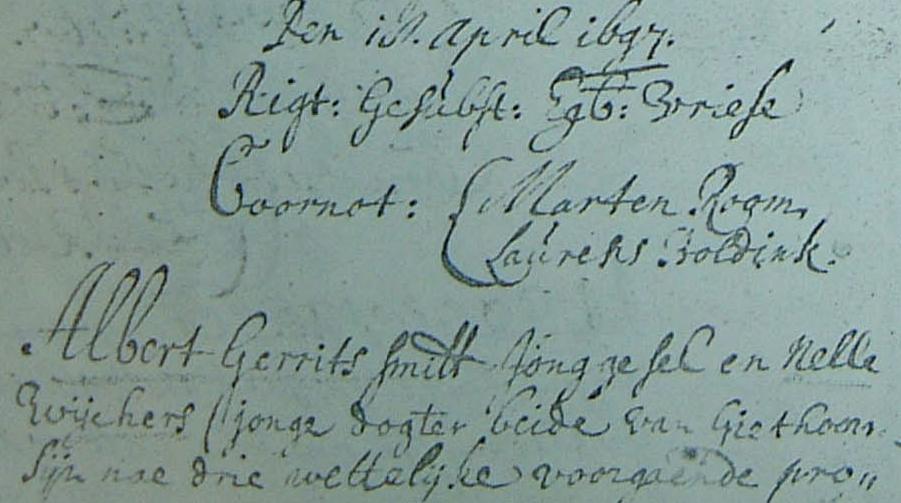 Den 18. April 1697.
Rigt: Gesubst: Egb: Vriese
Coornot: Marten Room,
Laurens Boldink.
Albert Gerrits smitt jong gesel en Nelle
Wijchers jonge dogter beide van Giethoorn
Sijn nae drie wettelijke voorgaende pro,,